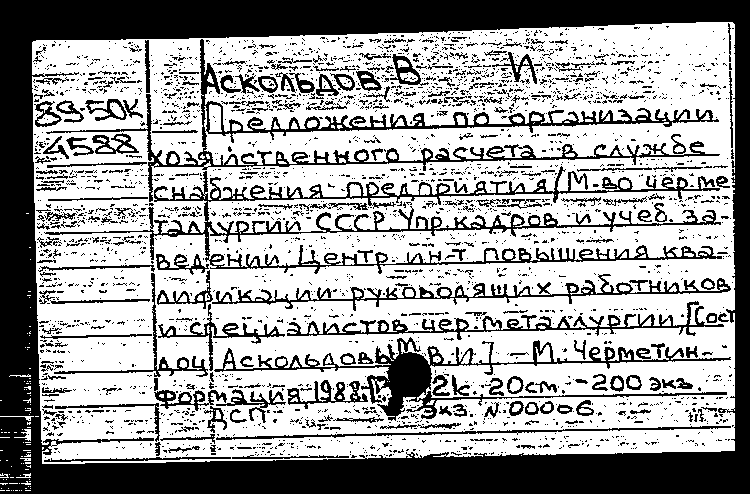 Аскольдов, В И
89-50К
Предложения по организации
4588
хозяйственного расчета в службе
снабжения предприятия / М-во чер. ме-
таллургии СССР. Упр. кадров и учеб. за-
ведений, Центр. ин-т повышения ква-
лификации руководящих работников
и специалистов чер. металлургии; [Сост.
доц Аскольдовым В.И.] - М.: Черметин-
формация, 1988. 21с., 20см. - 200 экз.
ДСП. Экз. N 00006.